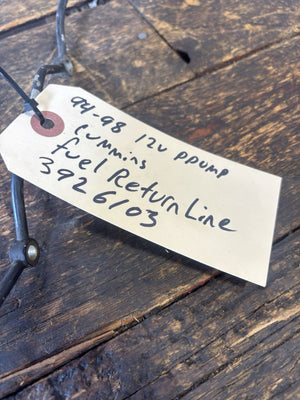 94-98 12v ppump
Cummins
fuel Return Line
3926103